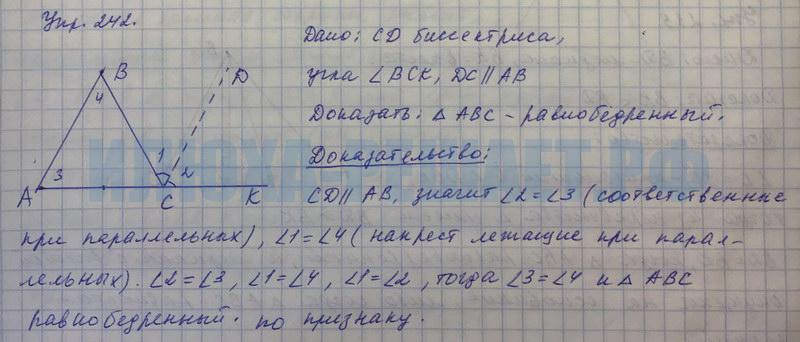 Упр. 242.
B
D
4
1
2
3
A
C
K
Дано: CD биссектриса,
угла ∠BCK, DC∥AB
Доказать: △ ABC - равнобедренный.
Доказательство:
CD∥AB, значит ∠2=∠3 (соответственные
при параллельных), ∠1=∠4 (накрест лежащие при парал-
лельных). ∠2=∠3, ∠1=∠4, ∠1=∠2, тогда ∠3=∠4 и △ ABC
равнобедренный. по признаку.